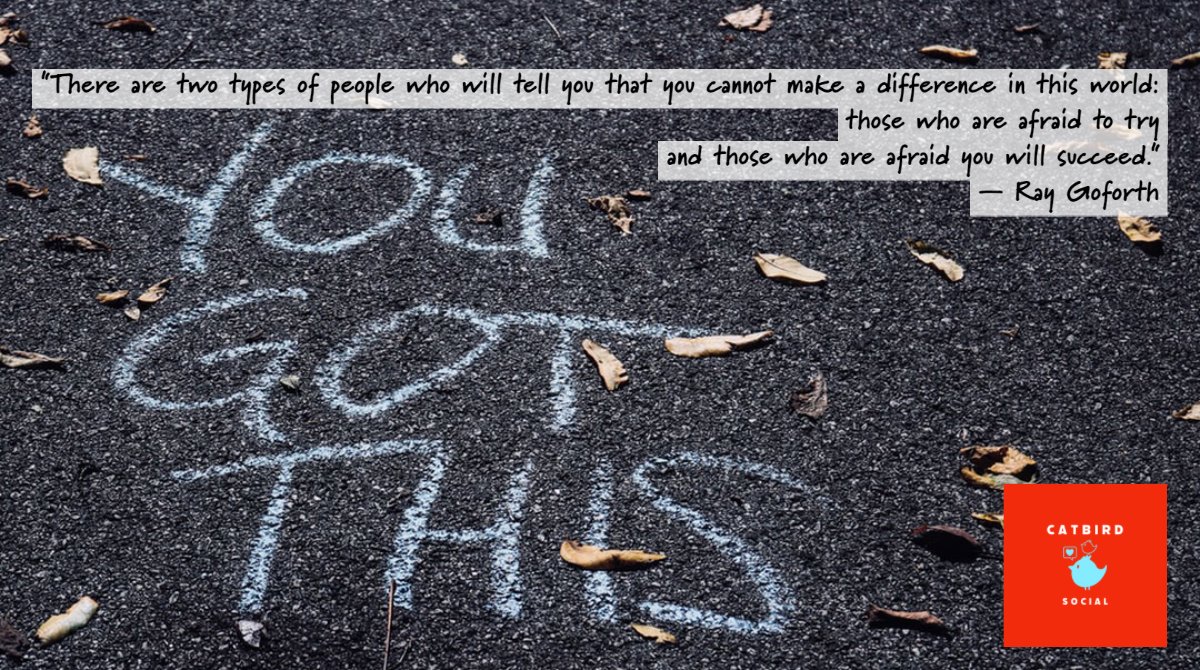 "There are two types of people who will tell you that you cannot make a difference in this world:
those who are afraid to try
and those who are afraid you will succeed."
— Ray Goforth
YOU
GOT
THIS
CATBIRD
SOCIAL